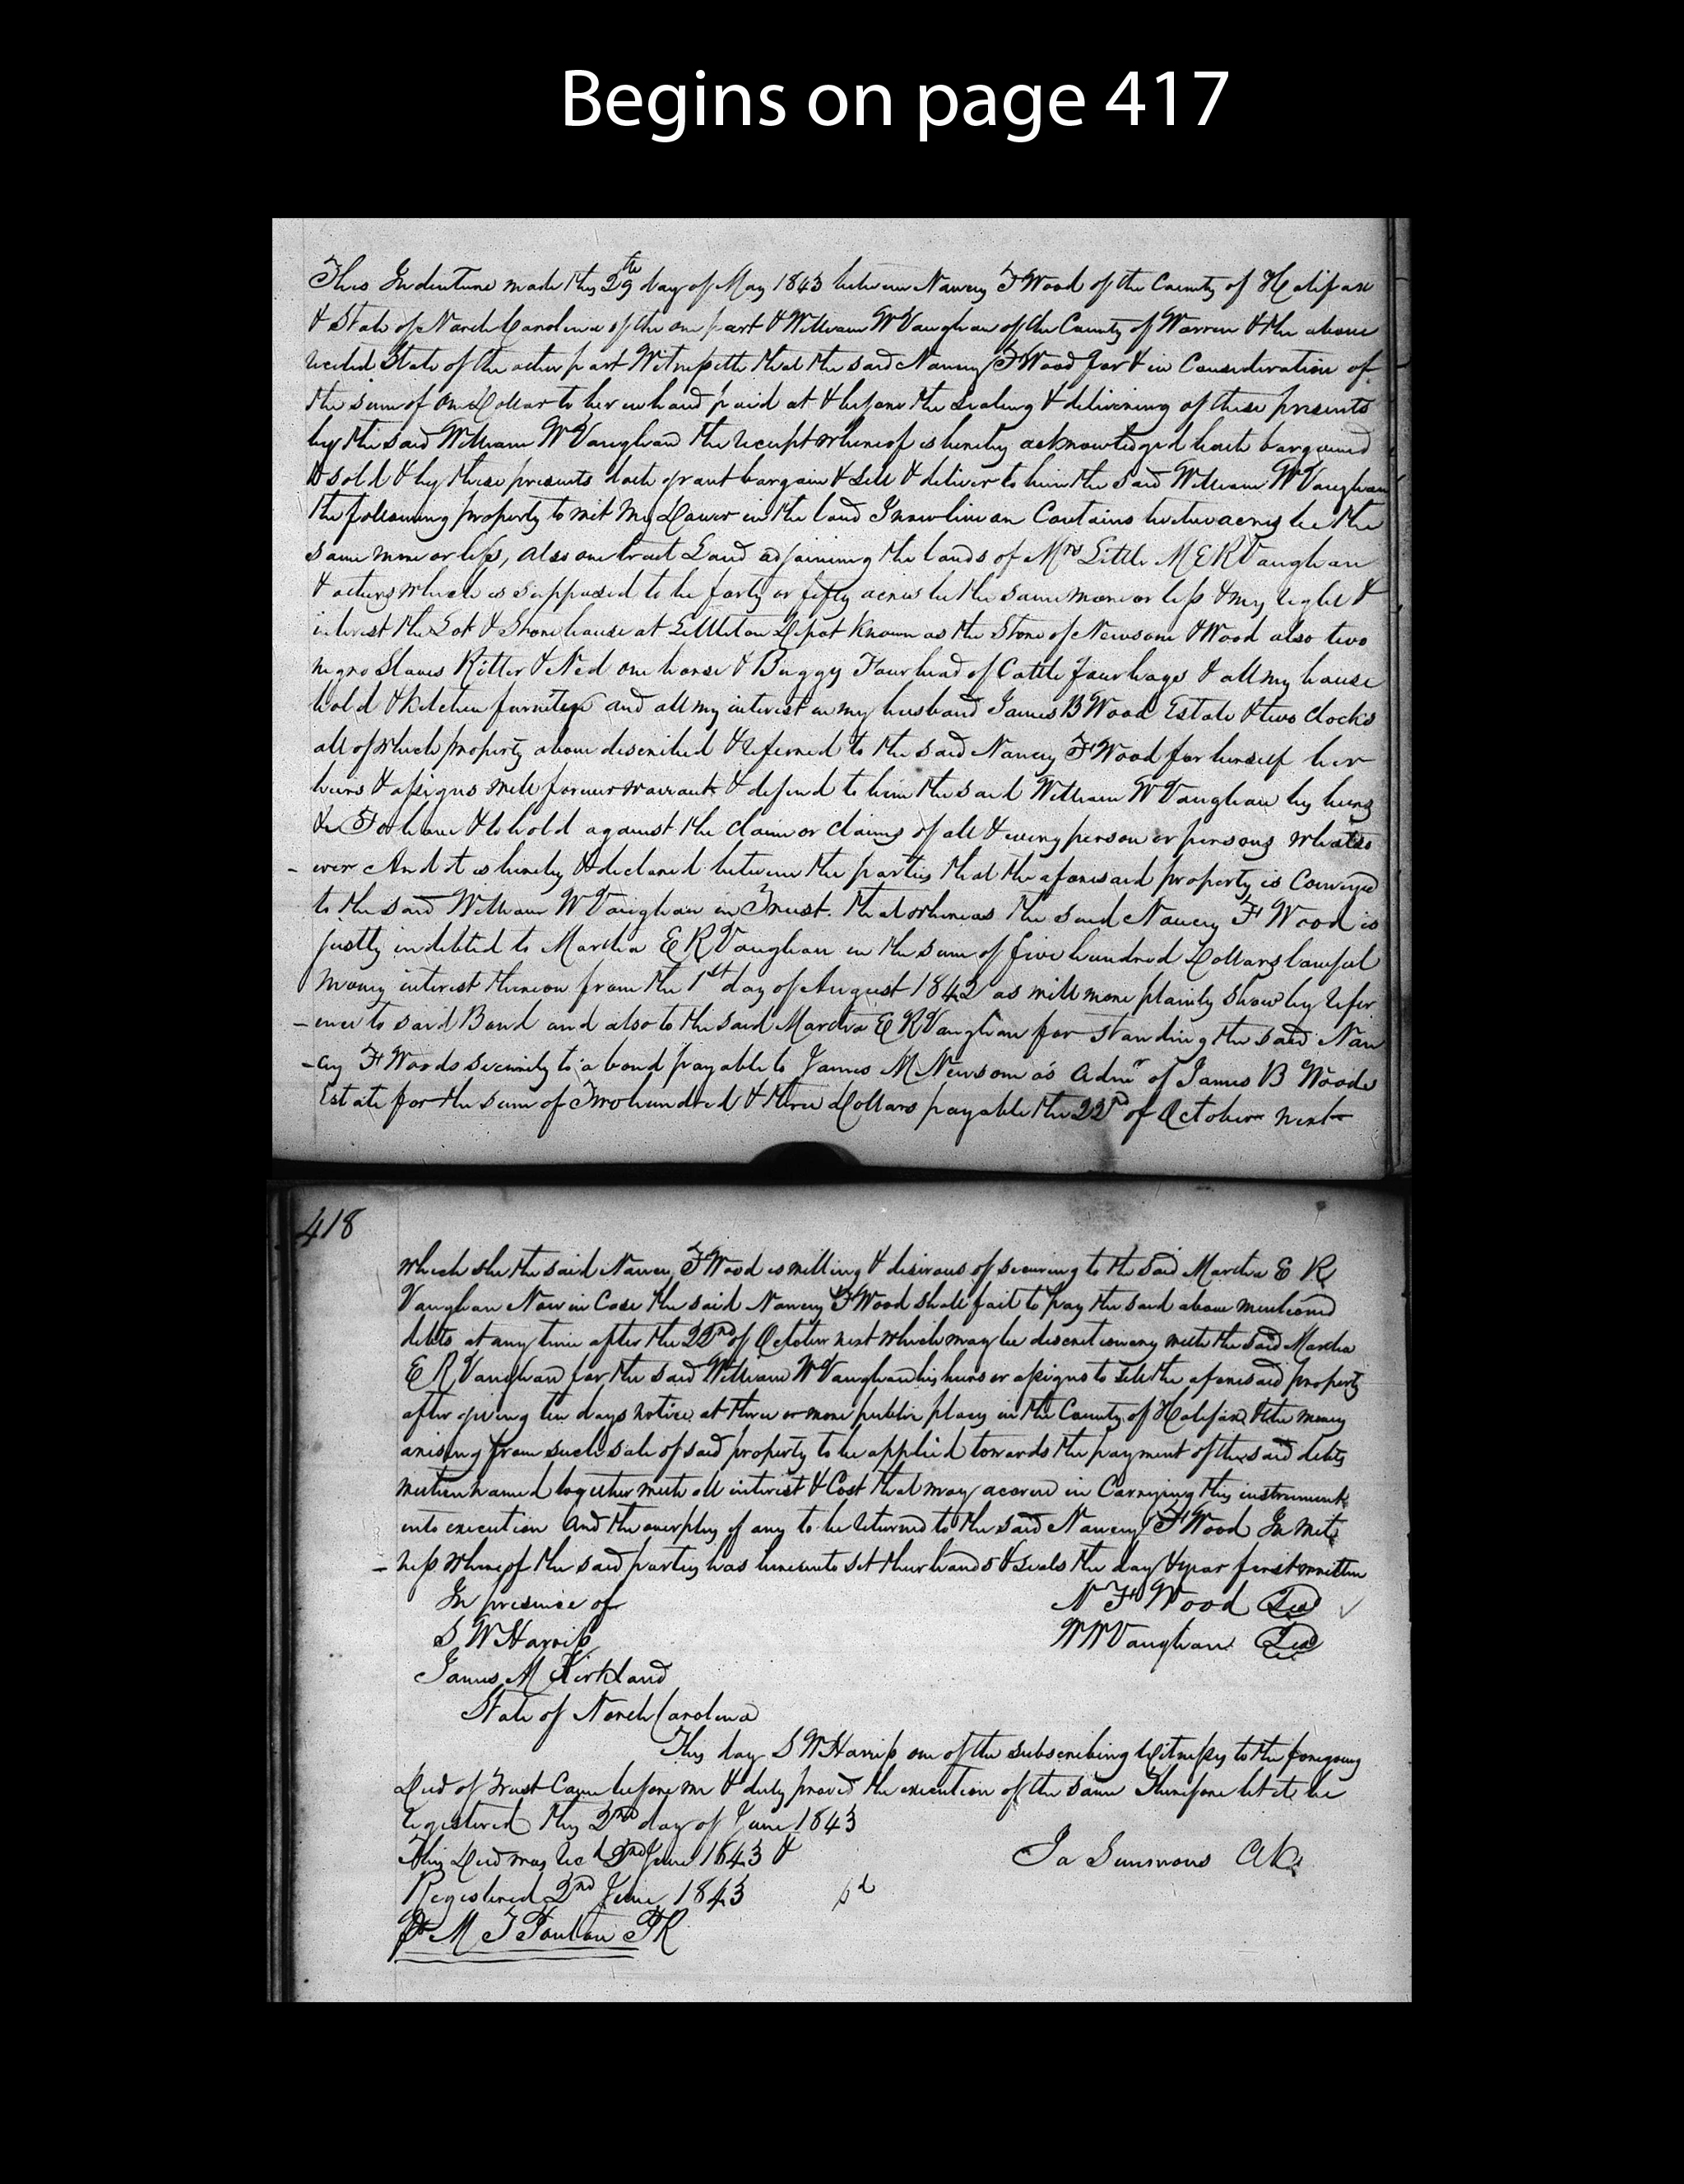 Begins on page 417
This Indenture made this 29th day of May 1843 between Nancy F Wood of the County of Halifax
& State of North Carolina of the one part & William W Vaughan of the County of Warren & the above
recited State of the other part Witnesseth that the said Nancy F Wood for & in Consideration of
the sum of One Dollar to her in hand paid at & before the Sealing & delivering of these presents
by the said William W Vaughan the receipt whereof is hereby acknowledged hath bargained
& sold & by these presents doth grant bargain & sell & deliver to him the said William W Vaughan
the following property to wit My Dower in the land I now live on Contains acres be the
same more or less, also one tract Land adjoining the lands of Mrs Little M E R Vaughan
& others which is supposed to be forty or fifty acres be the same more or less & my right &
interest the Lot & Storehouse at Littleton Depot Known as the Store of Newsom & Wood also two
negro Slaves Ritter & Ned one horse & Buggy Four head of Cattle four hogs & all my house
hold & kitchen furniture and all my interest in my husband James B Wood Estate & two clocks
all of which property above described & referred to the said Nancy F Wood for herself her
heirs & assigns will forever warrant & defend to him the said William W Vaughan his heirs
&c To have & to hold against the claim or claims of all & every person or persons whatso
- ever And it is hereby & declared between the parties that the aforesaid property is Conveyed
to the said William W Vaughan in Trust. that whereas the said Nancy F Wood is
justly indebted to Martha E R Vaughan in the sum of five hundred Dollars lawful
money interest thereon from the 1st day of August 1842 as will more plainly show by refer
- ence to said Bond and also to the said Martha E R Vaughan for standing the said Nan
- cy F Woods security to a bond payable to James M Newsom as Admr of James B Woods
Estate for the sum of Two hundred & three Dollars payable the 22nd of October next
418
which she the said Nancy F Wood is willing & desirous of securing to the said Martha E R
Vaughan Now in Case the said Nancy F Wood shall fail to pay the said above mentioned
debts at any time after the 22nd of October next which may be discretionary with the said Martha
E R Vaughan for the said William W Vaughan his heirs or assigns to sell the aforesaid property
after giving ten days notice at three or more public places in the County of Halifax & the money
arising from such sale of said property to be applied towards the payment of the said debts
within named together with all interest & Cost that may accrue in Carrying this instrument
into execution And the overplus if any to be returned to the said Nancy F Wood In Wit
- ness whereof the said parties has hereunto set their hands & seals the day & year first written
In presence of N F Wood Seal
S W Harriss W W Vaughan Seal
James M Kirkland
State of North Carolina
This day S W Harriss one of the subscribing Witnesses to the foregoing
Deed of Trust Came before me & duly proved the execution of the same Therefore let it be
registered this 2nd day of June 1843
This Deed was Recd 2nd June 1843 & Ja Simmons
Registered 2nd June 1843 pd
M T Ponton PR